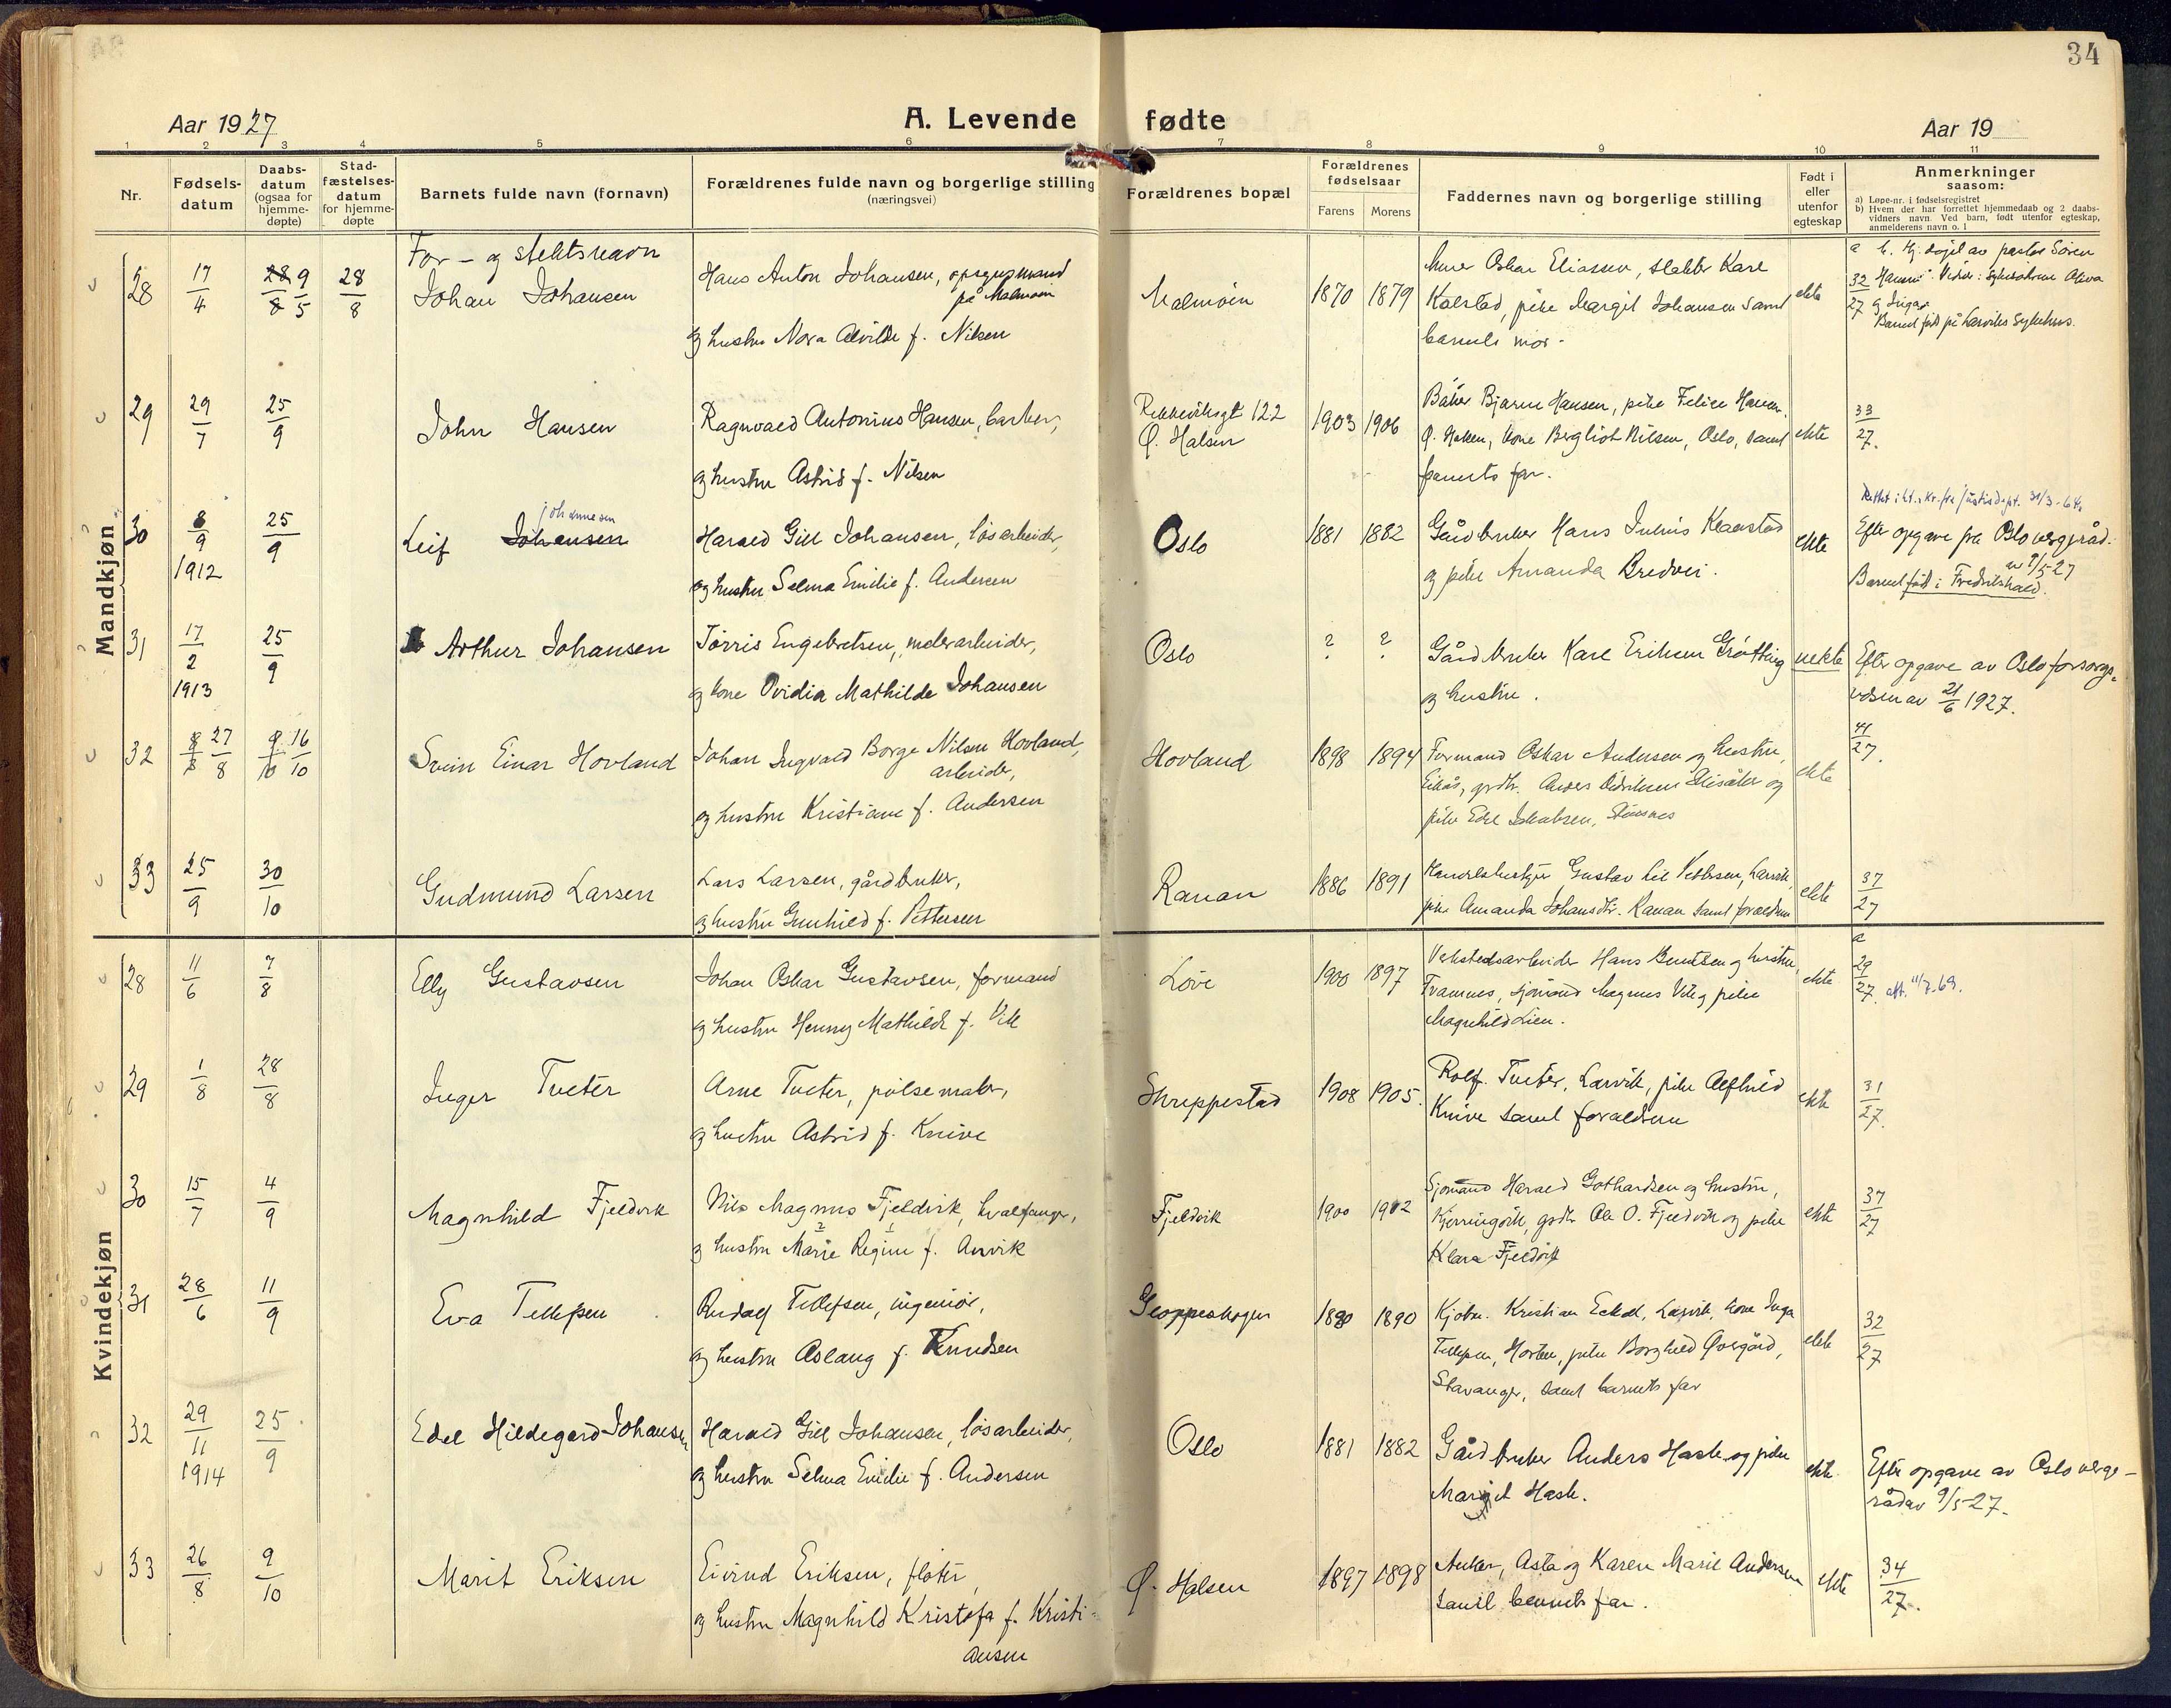 34
Aar 1927
A. Levende fødte
Aar 19
1 2 3 4 5 6 7 8 9 10 11
Nr.
Fødsels-
datum
Daabs-
datum
(ogsaa for
hjemme-
døpte)
Stad-
fæstelses-
datum
for hjemme-
døpte
Barnets fulde navn (fornavn)
Forældrenes fulde navn og borgerlige stilling
(næringsvei)
Forældrenes bopæl
Forældrenes
fødselsaar
Farens Morens
Faddernes navn og borgerlige stilling
Født i
eller
utenfor
egteskap
Anmerkninger
saasom:
a) Løpe-nr. i fødselsregistret
b) Hvem der har forrettet hjemmedaab og 2 daabs-
vidners navn. Ved barn, født utenfor egteskap,
anmelderens navn o. l.
Mandkjøn
For- og slektsnavn
28 17/4 28/8 9/5 28/8 Johan Johansen
Hans Anton Johansen, opsynsmand
på Malmøin
og hustru Nora Alvilde f. Nilsen
Malmøin 1870 1879
Murer Oskar Eliassen, slakter Karl
Kolstad, pike Margit Johansen samt
barnets mor.
ekte
a 32/27
Barnet født på Larviks Sykehus.
29 29/7 25/9 John Hansen
Ragnvald Antonius Hansen, barber,
og hustru Astrid f. Nilsen
Rekkeviksgt 122
Ø. Halsen
1903 1906
Baker Bjarne Hansen, pike Felice Hansen
Ø. Halsen, kone Bergliot Nilsen, Oslo, samt
barnets far.
ekte
33/27.
30 8/9 1912 25/9 Leif Johansen
Johannesen
Harald Gill Johansen, løsarbeider,
og hustru Selma Emilie f. Andersen
Oslo 1881 1882
Gårdbruker Hans Julius Klaastad
og pike Amanda Bredvei.
ekte
31/3-64
Efter opgave fra Oslo vergeråd
av 9/5 27
Barnet født i Fredrikshald.
31 17/2 1913 25/9 Arthur Johansen
Tørris Engebretsen, malerarbeider,
og kone Ovidia Mathilde Johansen
Oslo ? ?
Gårdbruker Karl Eriksen Grøtting
og hustru.
uekte
Efter opgave av Oslo forsorgs-
vesen av 21/6 1927.
32 8/8 27/8 9/10 16/10 Svein Einar Hovland
Johan Ingvald Borge Nilsen Hovland,
arbeider,
og hustru Kristiane f. Andersen
Hovland 1898 1894
Formand Oskar Andersen og hustru,
Eikås, grdbr. Anders Didriksen og
pike Edel Jakobsen,
ekte
41/27.
33 25/9 30/10 Gudmund Larsen
Lars Larsen, gårdbruker,
og hustru Gunhild f. Pettersen
Ranan 1886 1891
Gustav Pettersen, Larvik,
pike Amanda Johansdtr. Ranan samt forældrene
ekte
37/27
Kvindekjøn
28 11/6 7/8 Elly Gustavsen
Johan Oskar Gustavsen, formand
og hustru Henny Mathilde f. Vik
Løve 1900 1897
Verkstedsarbeider Hans Bentsen og hustru,
Framnes, sjømand Magnus Vik og pike
Magnhild Lien.
ekte
a 29/27. att. 11/7-69.
29 1/8 28/8 Inger Tveter
Arne Tveter, pølsemaker,
og hustru Astrid f. Knive
Skreppestad 1908 1905.
Rolf Tveter, Larvik, pike Alfhild
Knive samt forældrene
ekte
31/27.
30 15/7 4/9 Magnhild Fjeldvik
Nils Magnus Fjeldvik, hvalfanger,
og hustru Marie Regine f. Anvik
Fjeldvik 1900 1902
Sjømand Harald Gothardsen og hustru,
Kjerringvik, grdbr Ole O. Fjeldvik og pike
Klara Fjeldvik
ekte
37/27
31 28/6 11/9 Eva Tellefsen
Rudolf Tellefsen, ingeniør,
og hustru Aslaug f. Knudsen
Gloppeskogen 1890 1890
Kjøbm. Kristian Eckdal, Larvik, kone Inga
Tellefsen, Horten, pike Borghild Øvergård,
Stavanger, samt barnets far
ekte
32/27
32 29/11 1914 25/9 Edel Hildegard Johansen
Harald Gill Johansen, løsarbeider,
og hustru Selma Emilie f. Andersen
Oslo 1881 1882
Gårdbruker Anders Hask og pike
Margit Hask.
ekte
Efter opgave av Oslo verge-
råd av 9/5-27.
33 26/8 9/10 Marit Eriksen
Eivind Eriksen, fløter,
og hustru Magnhild Kristofa f. Kristi-
ansen
Ø. Halsen 1897 1898
Anker, Asta og Karen Marie Andersen
samt barnets far.
ekte
34/27.